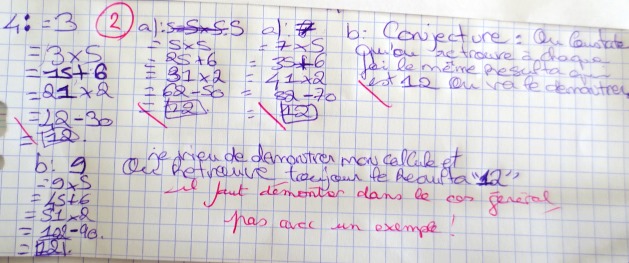 4: = 3
= 3 x 5
= 15 + 6
= 21 x 2
= 42 - 30
= 12.
2 a): 5
= 5 x 5
= 25 + 6
= 31 x 2
= 62 - 50
= 12
a): 7
= 7 x 5
= 35 + 6
= 41 x 2
= 82 - 70
= 12
b: Conjecture: On Constate
qu'on retrouve à chaque
foi le même Resulta qui
est 12 on va le démontrer
b: 9
= 9 x 5
= 45 + 6
= 51 x 2
= 102 - 90.
= 12
je vien de démontrer mon calcule et
On Retrouve toujour le Resulta "12"
il faut démontrer dans le cas général
pas avec un exemple!